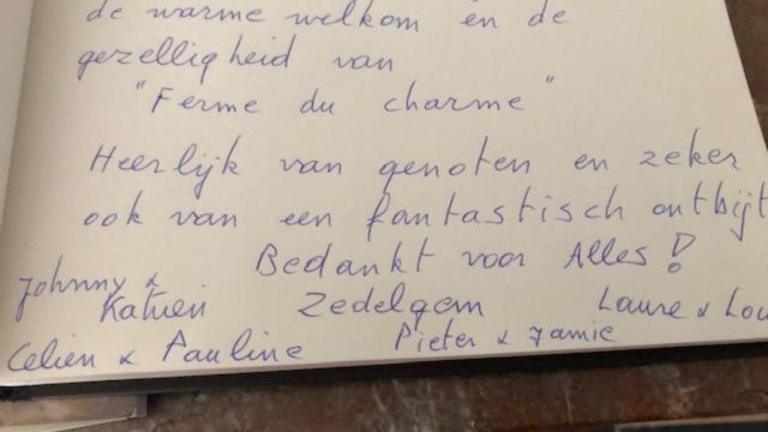 de warme welkom en de
gezelligheid van
"Ferme du charme"
Heerlijk van genoten en zeker
ook van een fantastisch ontbijt
Bedankt voor Alles!
Johnny &
Katrien Zedelgem Laure & Lou
Celien & Pauline Pieter & Jamie